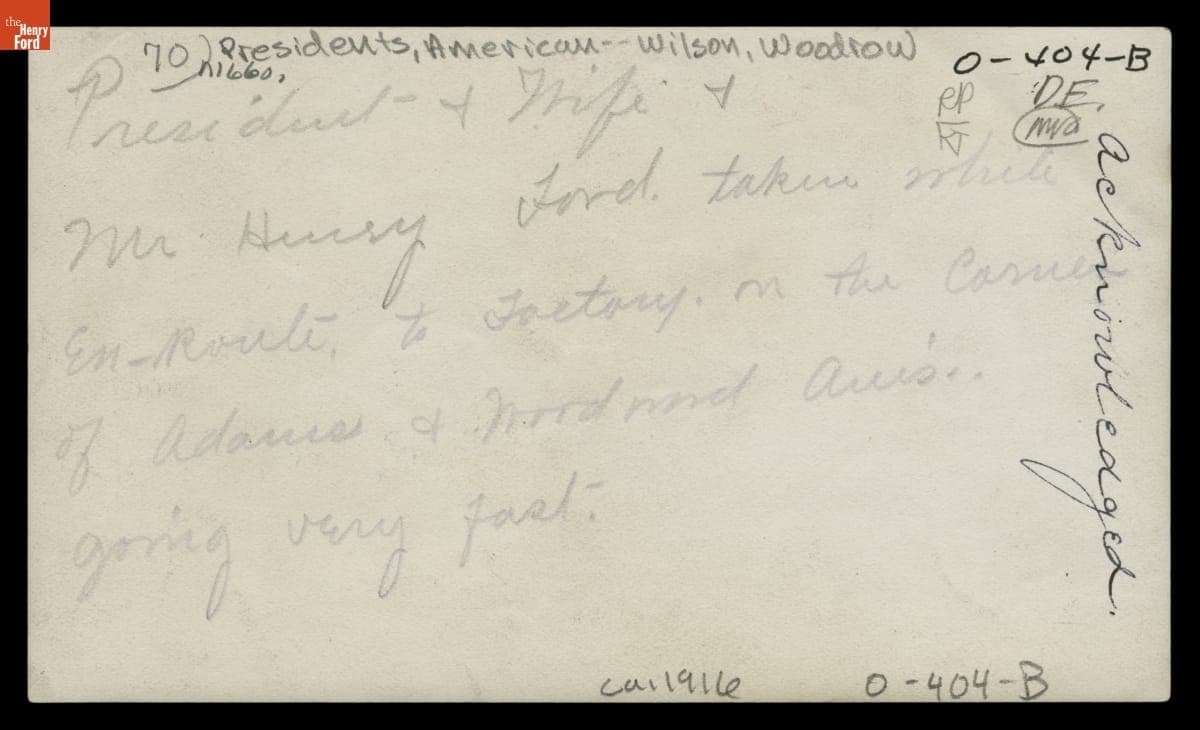 the
Henry
Ford
70) Presidents, American--Wilson, Woodrow
n1660.
0-404-B
D.E.
President & Wife &
Mr Henry Ford. taken while
En-Route, to Factory. on the Corner
of Adams & Woodward Ave's..
going very fast.
Acknowledged.
ca.1916
0-404-B